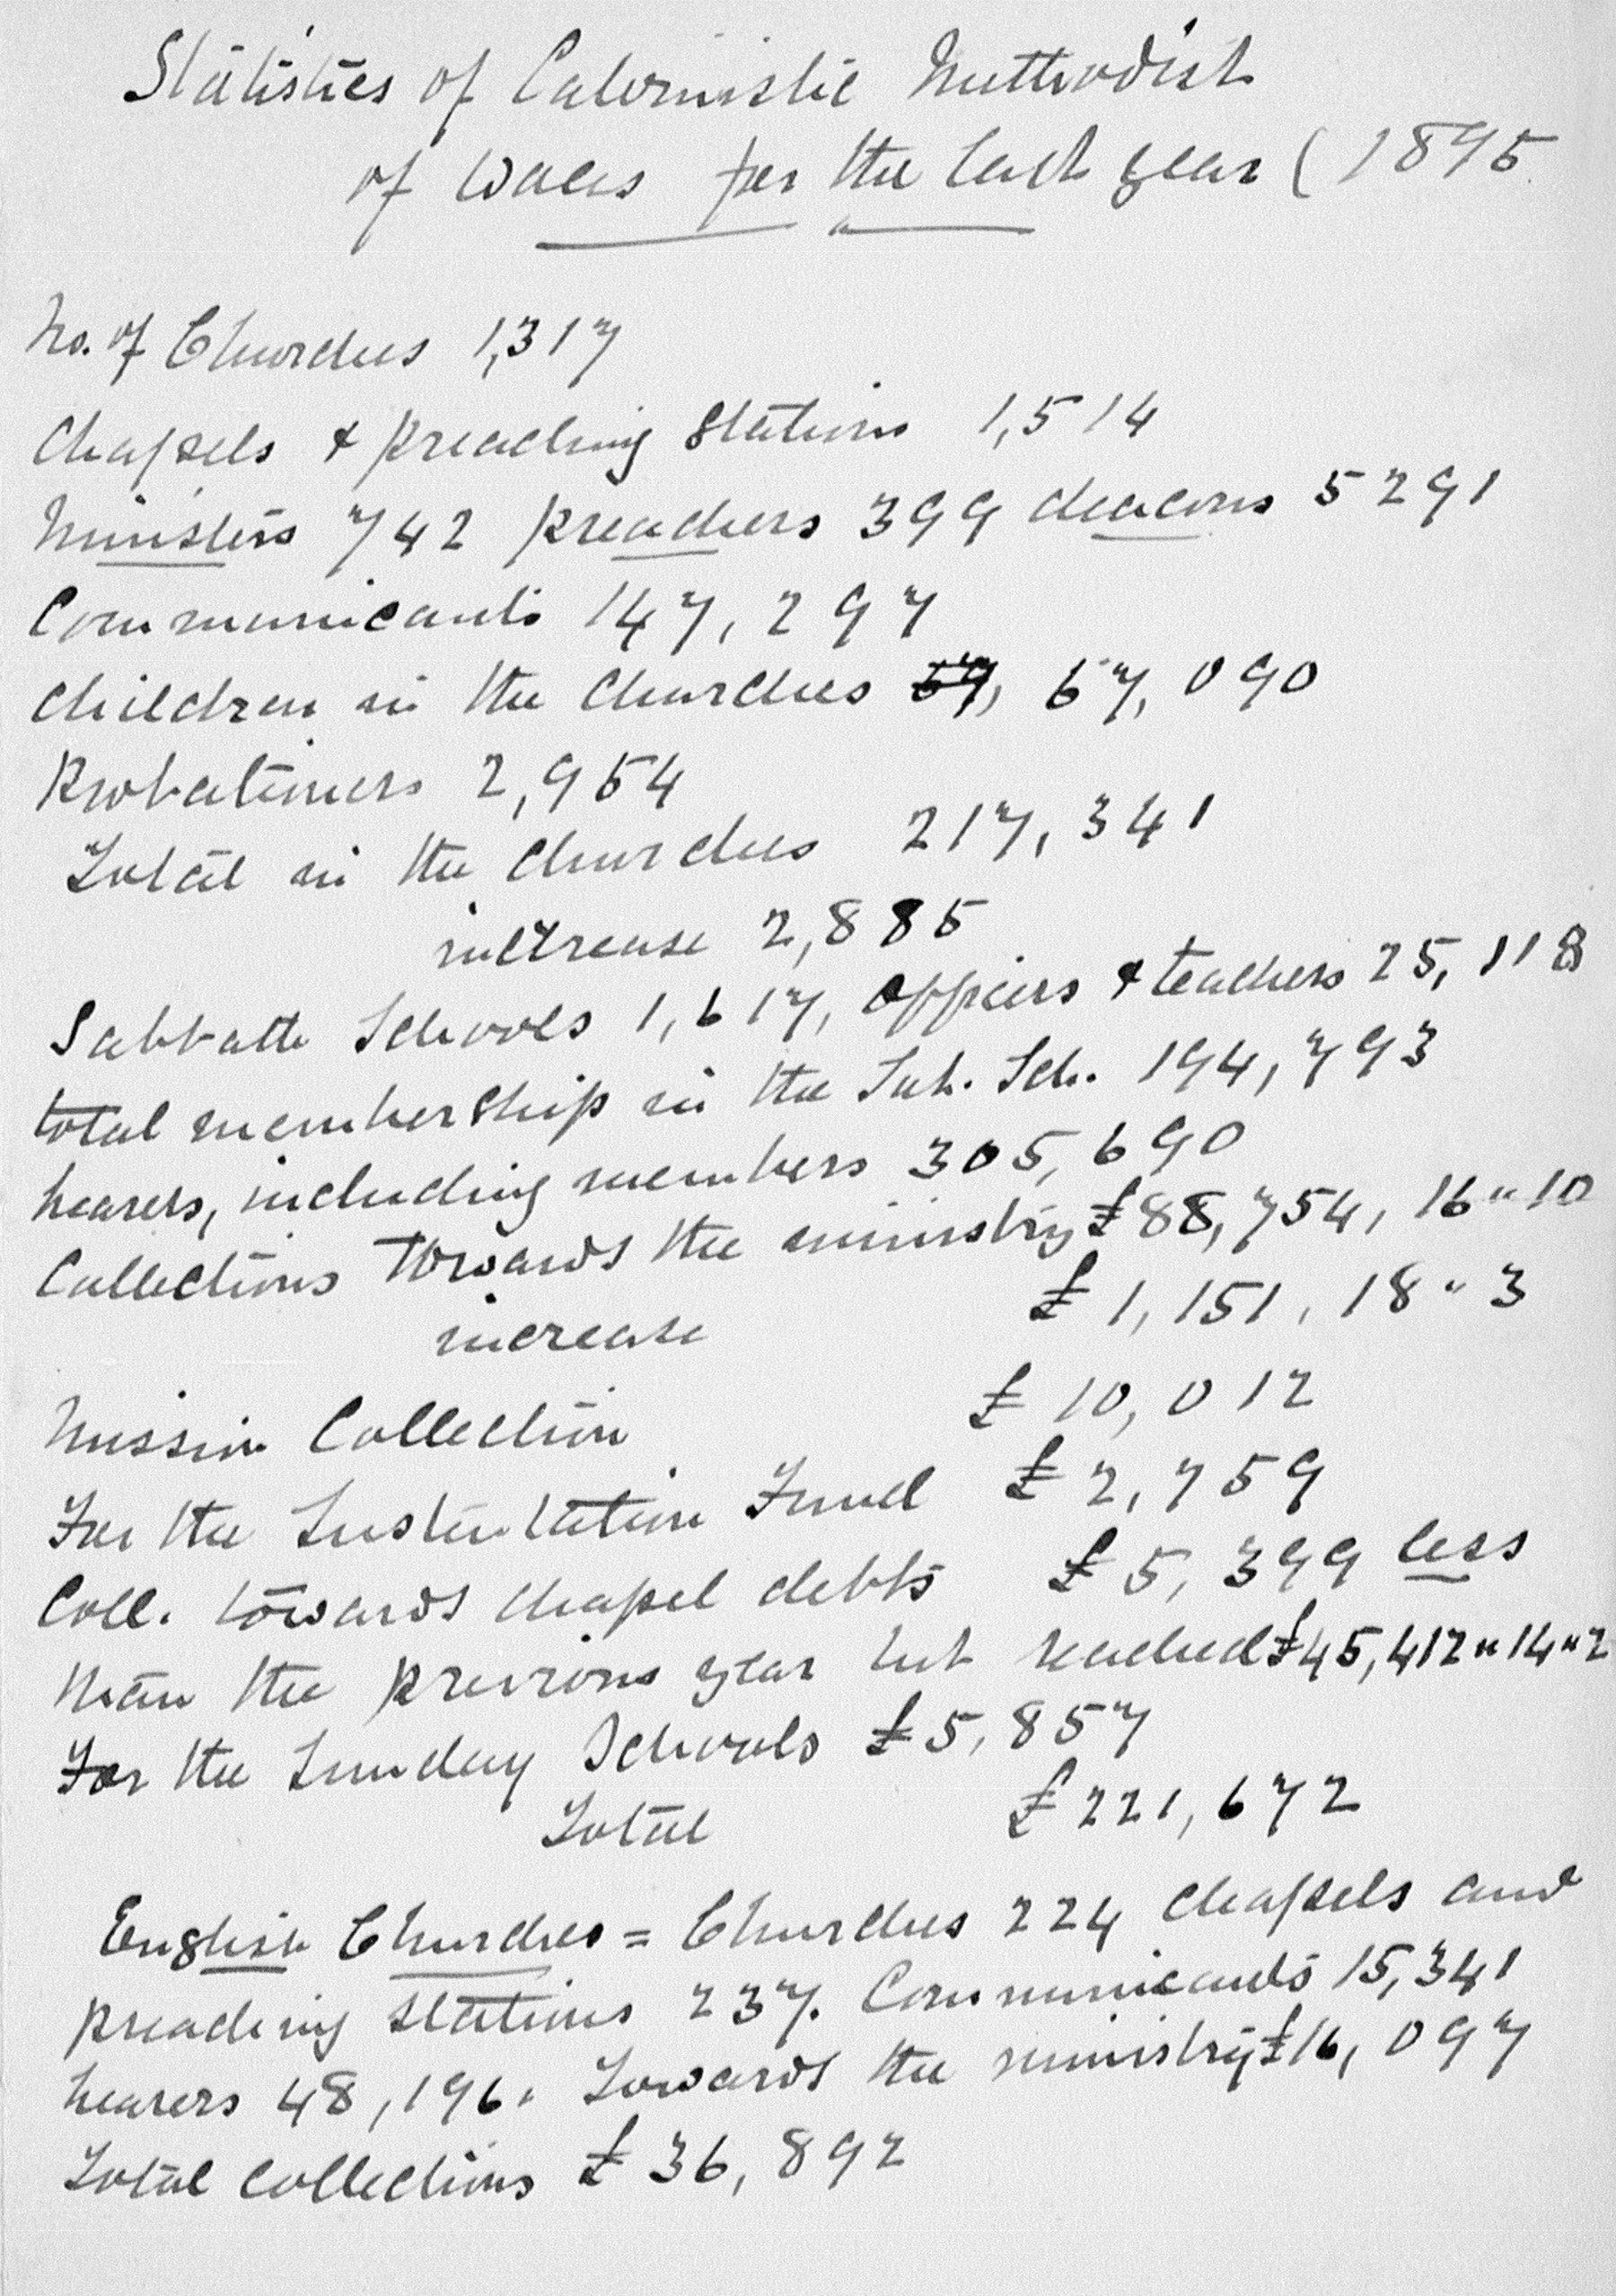 Statistics of Calvinistic Methodist
of Wales for the last year (1895
No. of Churches 1,317
Chapels & preaching stations 1,514
Ministers 742 preachers 399 deacons 5291
Communicants 147,297
Children in the Churches 67, 67,090
Probationers 2,954
Total in the Churches 217,341
increase 2,885
Sabbath Schools 1,617, officers & teachers 25,118
total membership in the Sab. Sch. 194,793
hearers, including members 305,690
Collections towards the ministry £88,754, 16"10
increase £1,151, 18"3
Mission Collection £10,012
For the Sustentation Fund £2,759
Coll. towards chapel debts £5,399 less
than the previous year but reached £45,412"14"2
For the Sunday Schools £5,857
Total £221,672
English Churches = Churches 224 chapels and
preaching stations 237. Communicants 15,341
hearers 48,196. Towards the ministry £16,097
Total collections £36,892